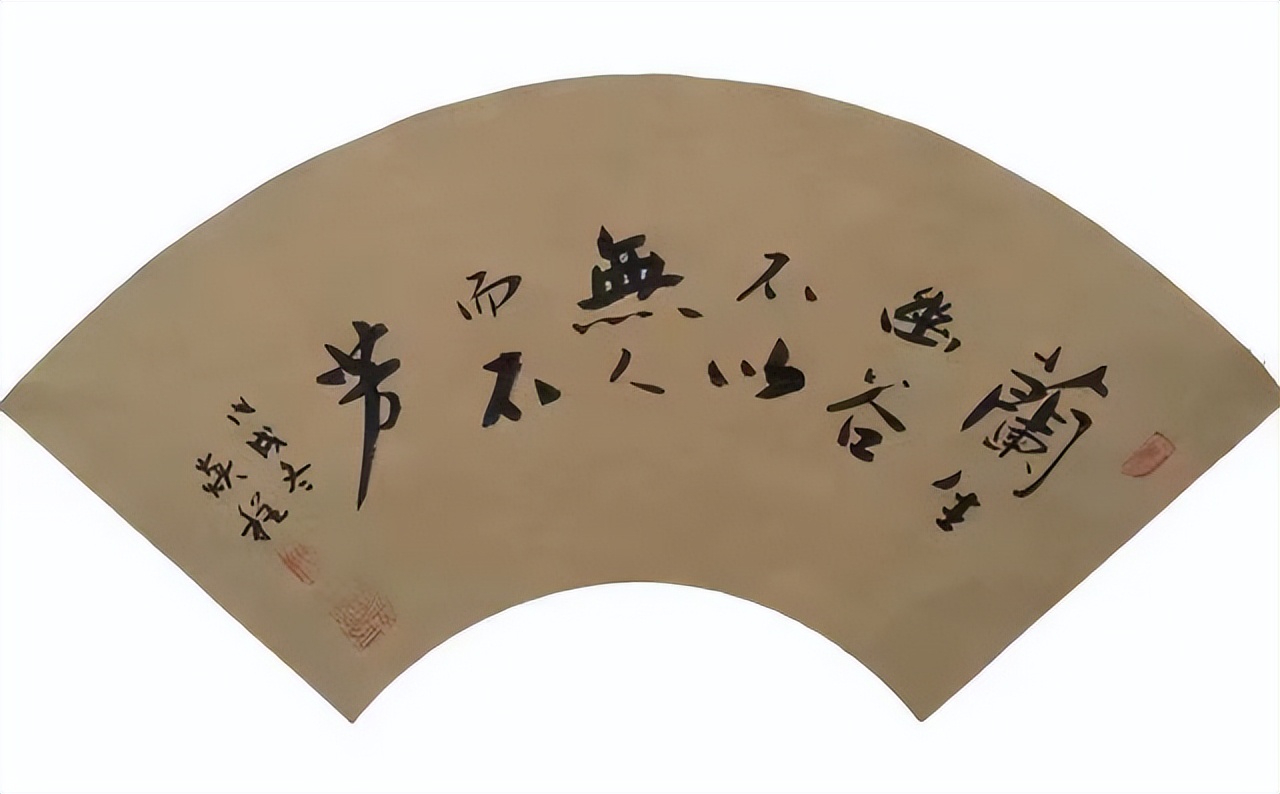 蘭生
幽谷
不以
無人
而不
芳